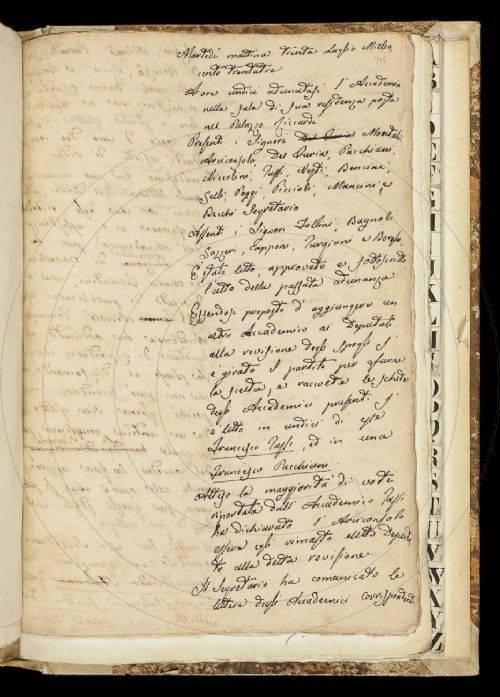 Martedì mattina trenta Luglio Milleo
cento trentatre
A ore undici adunatasi l'Accademia
nella sala di sua residenza posta
nel Palazzo Riccardi
Presenti i Signori Del Furia Mondolfi
Arciconsolo, Del Furia, Pacchiani,
Niccolini, Tassi, Nesti, Bencini,
Selli Poggi, Piccioli, Mancini, e
Becchi Segretario
Assenti i Signori Follini, Bagnoli
Capponi, Targioni e Borghi
È stato letto, approvato e sottoscritto
l'atto della passata adunanza
Essendosi proposto d'aggiungere un
altro Accademico ai Deputati
alla revisione degli spogli si
è girato il partito per farne
la scelta, e raccolte le schede
degli Accademici presenti si
è letto in undici di esse
Francesco Tassi, ed in una
Francesco Pacchiani.
Atteso la maggiorità di voti
riportata dall'Accademico Tassi
ha dichiarato l'Arciconsolo
essere egli rimasto eletto Deputa
to alla detta revisione.
Il Segretario ha comunicato le
lettere degli Accademici corrispondenti
B
D
E
F
G
I
K
L
O
P
Q
R
S
T
U
V
W
X
Y
Z